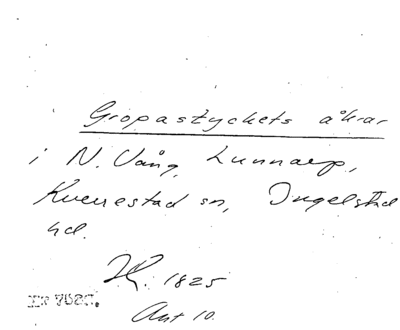 Gropastyckets åkrar
i N. Vång, Lunnarp,
Kverrestad sn, Ingelstad
hd.
1825
Akt 10.